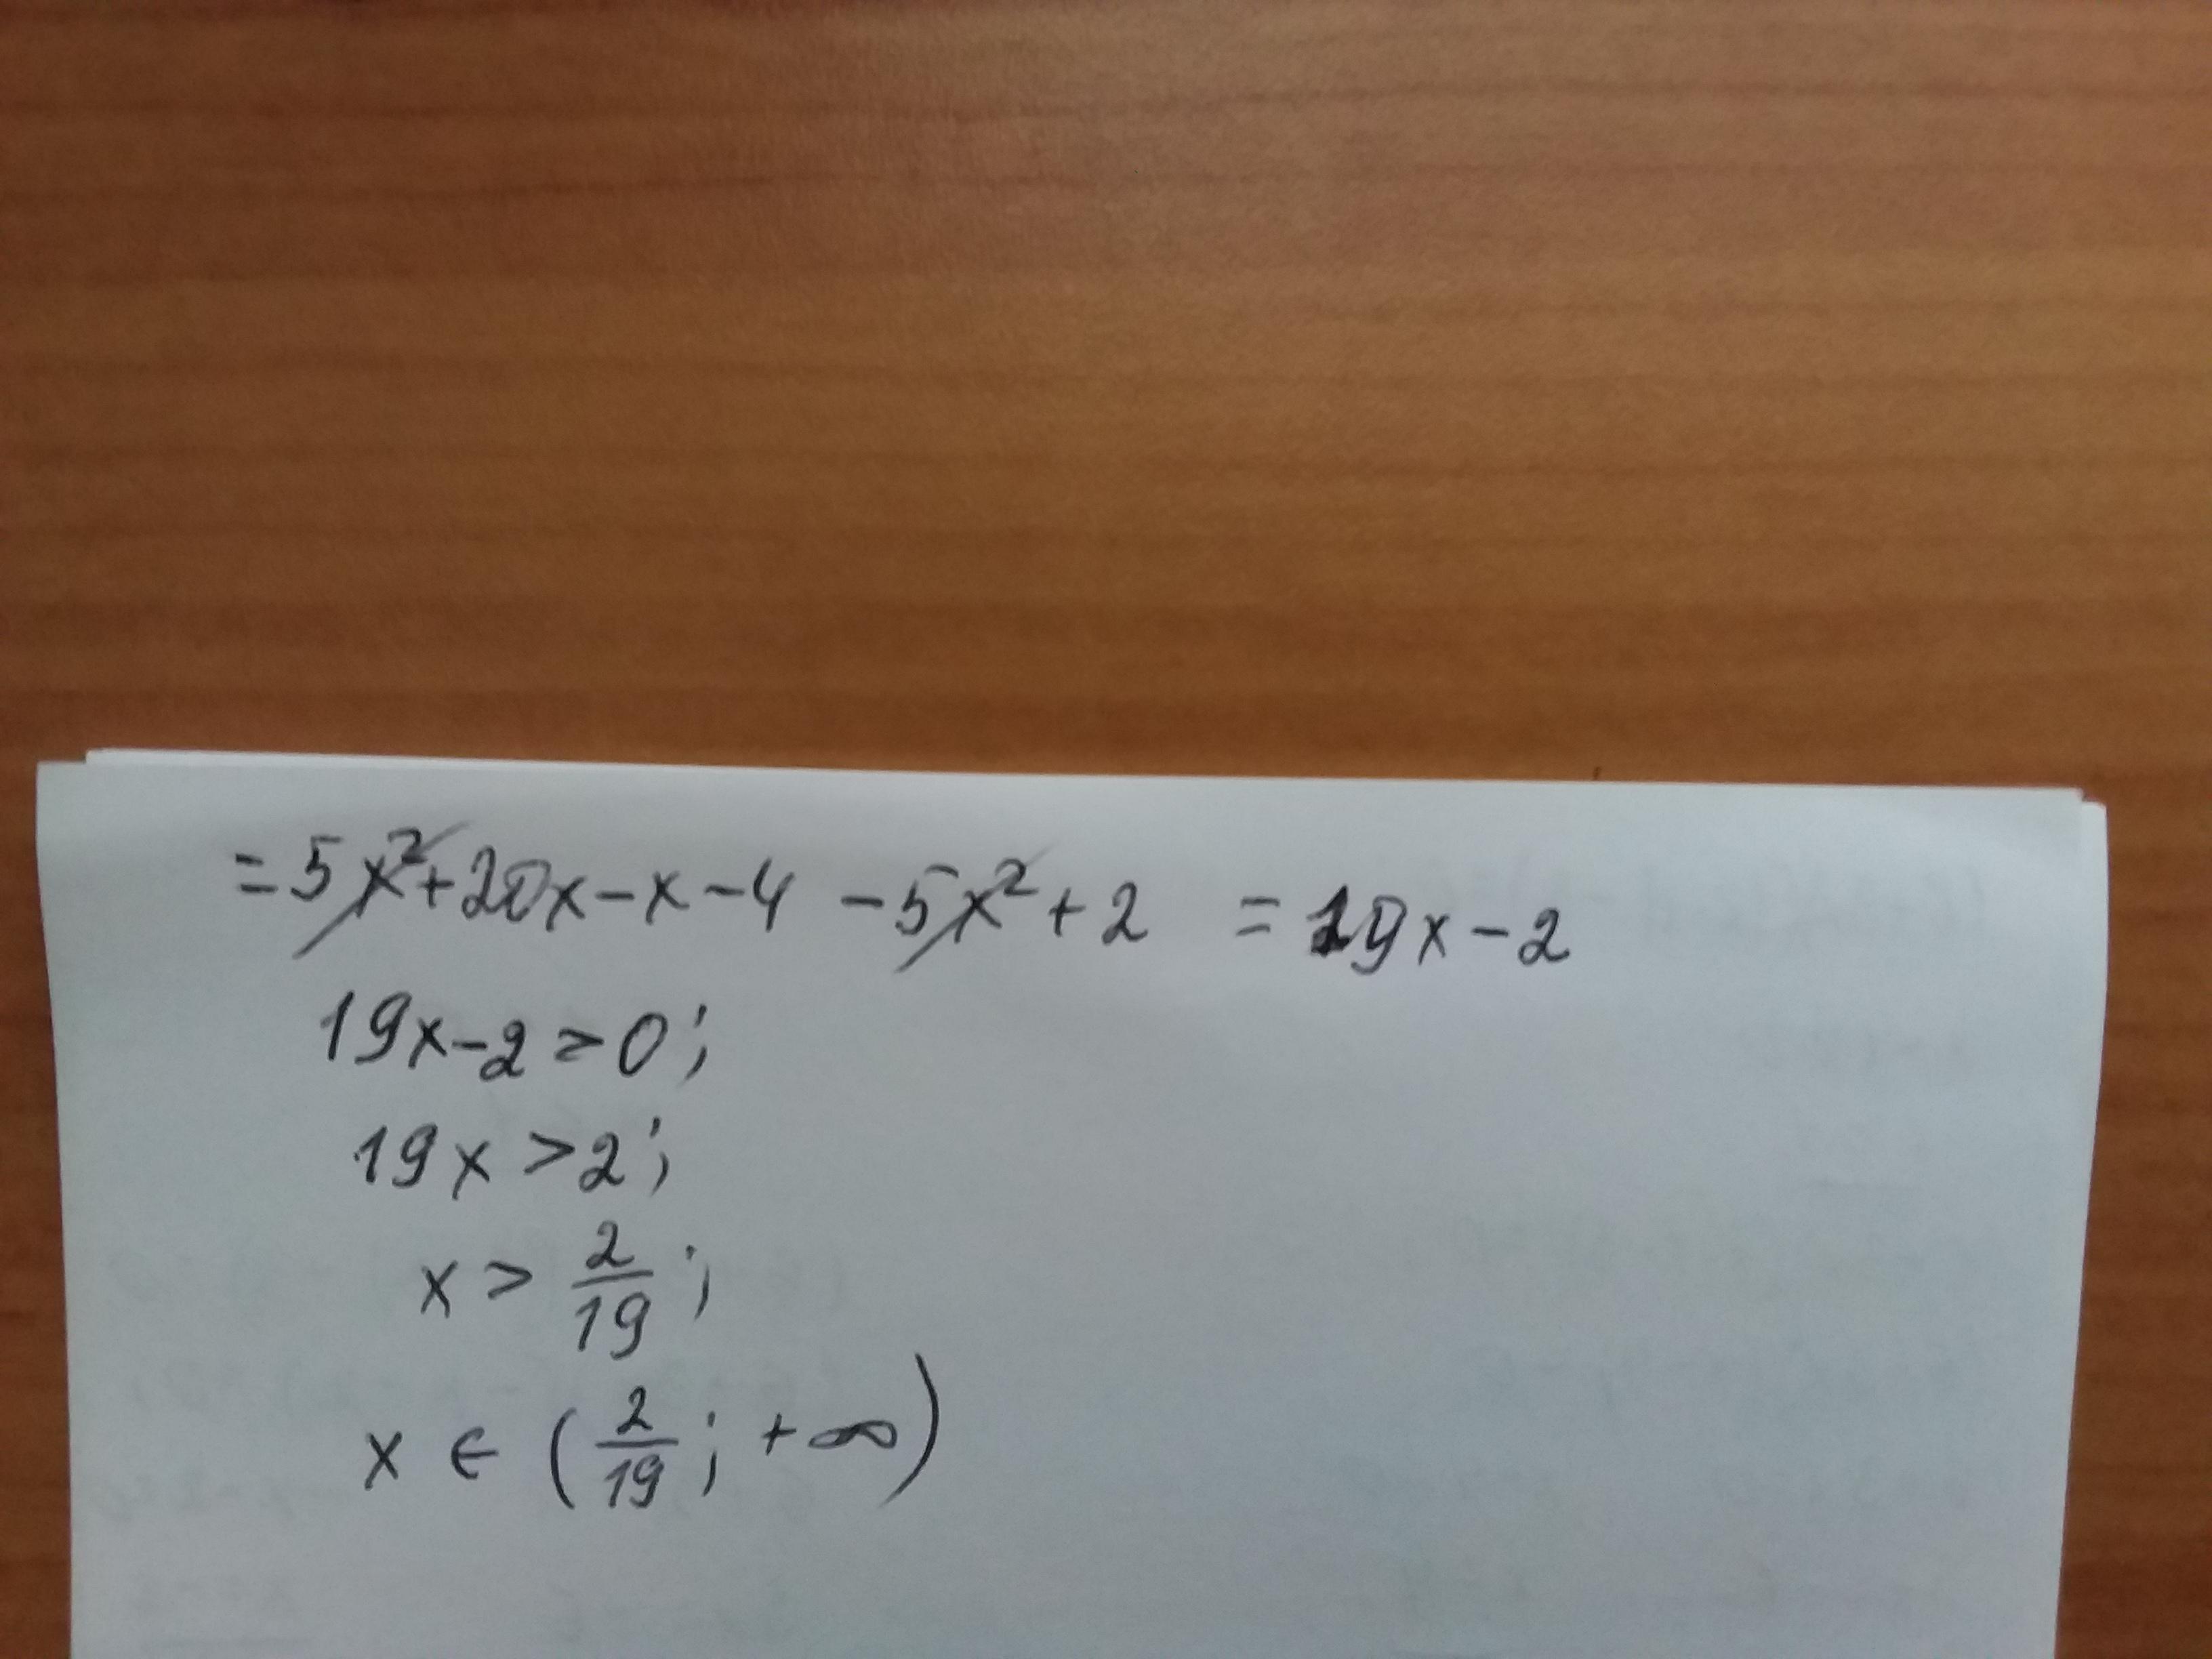 = 5x² + 20x - x - 4 - 5x² + 2 = 19x - 2
19x - 2 > 0;
19x > 2;
x > 2/19;
x ∈ (2/19; +∞)